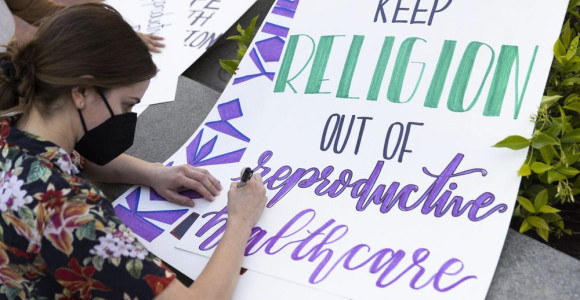 KEEP
RELIGION
OUT OF
reproductive
healthcare